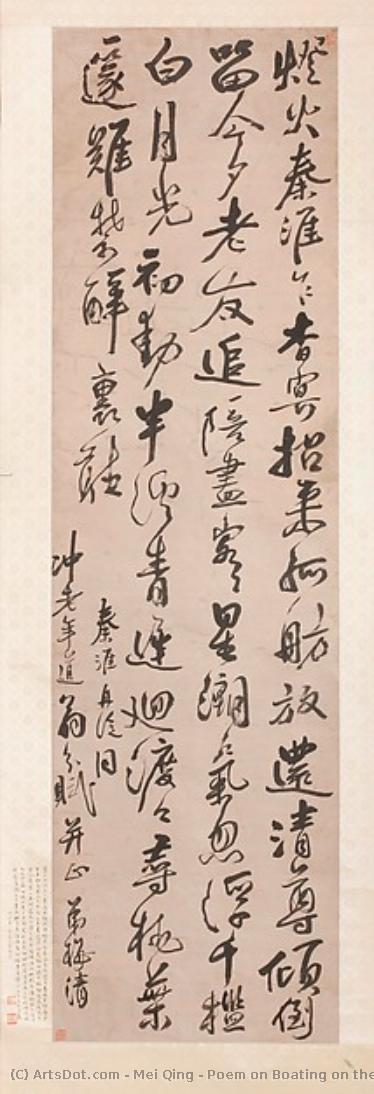 燈火秦淮乍杳冥招來孤舫放還清尊傾倒
留今夕老友追陪盡客星潮氣忽浮千檻
白月光初動半溪青遲迴渡々尋桃葉
篴難禁醉裏聽
秦淮舟泛同
冲老年道翁分賦并正 弟梅清
(C) ArtsDot.com - Mei Qing - Poem on Boating on the